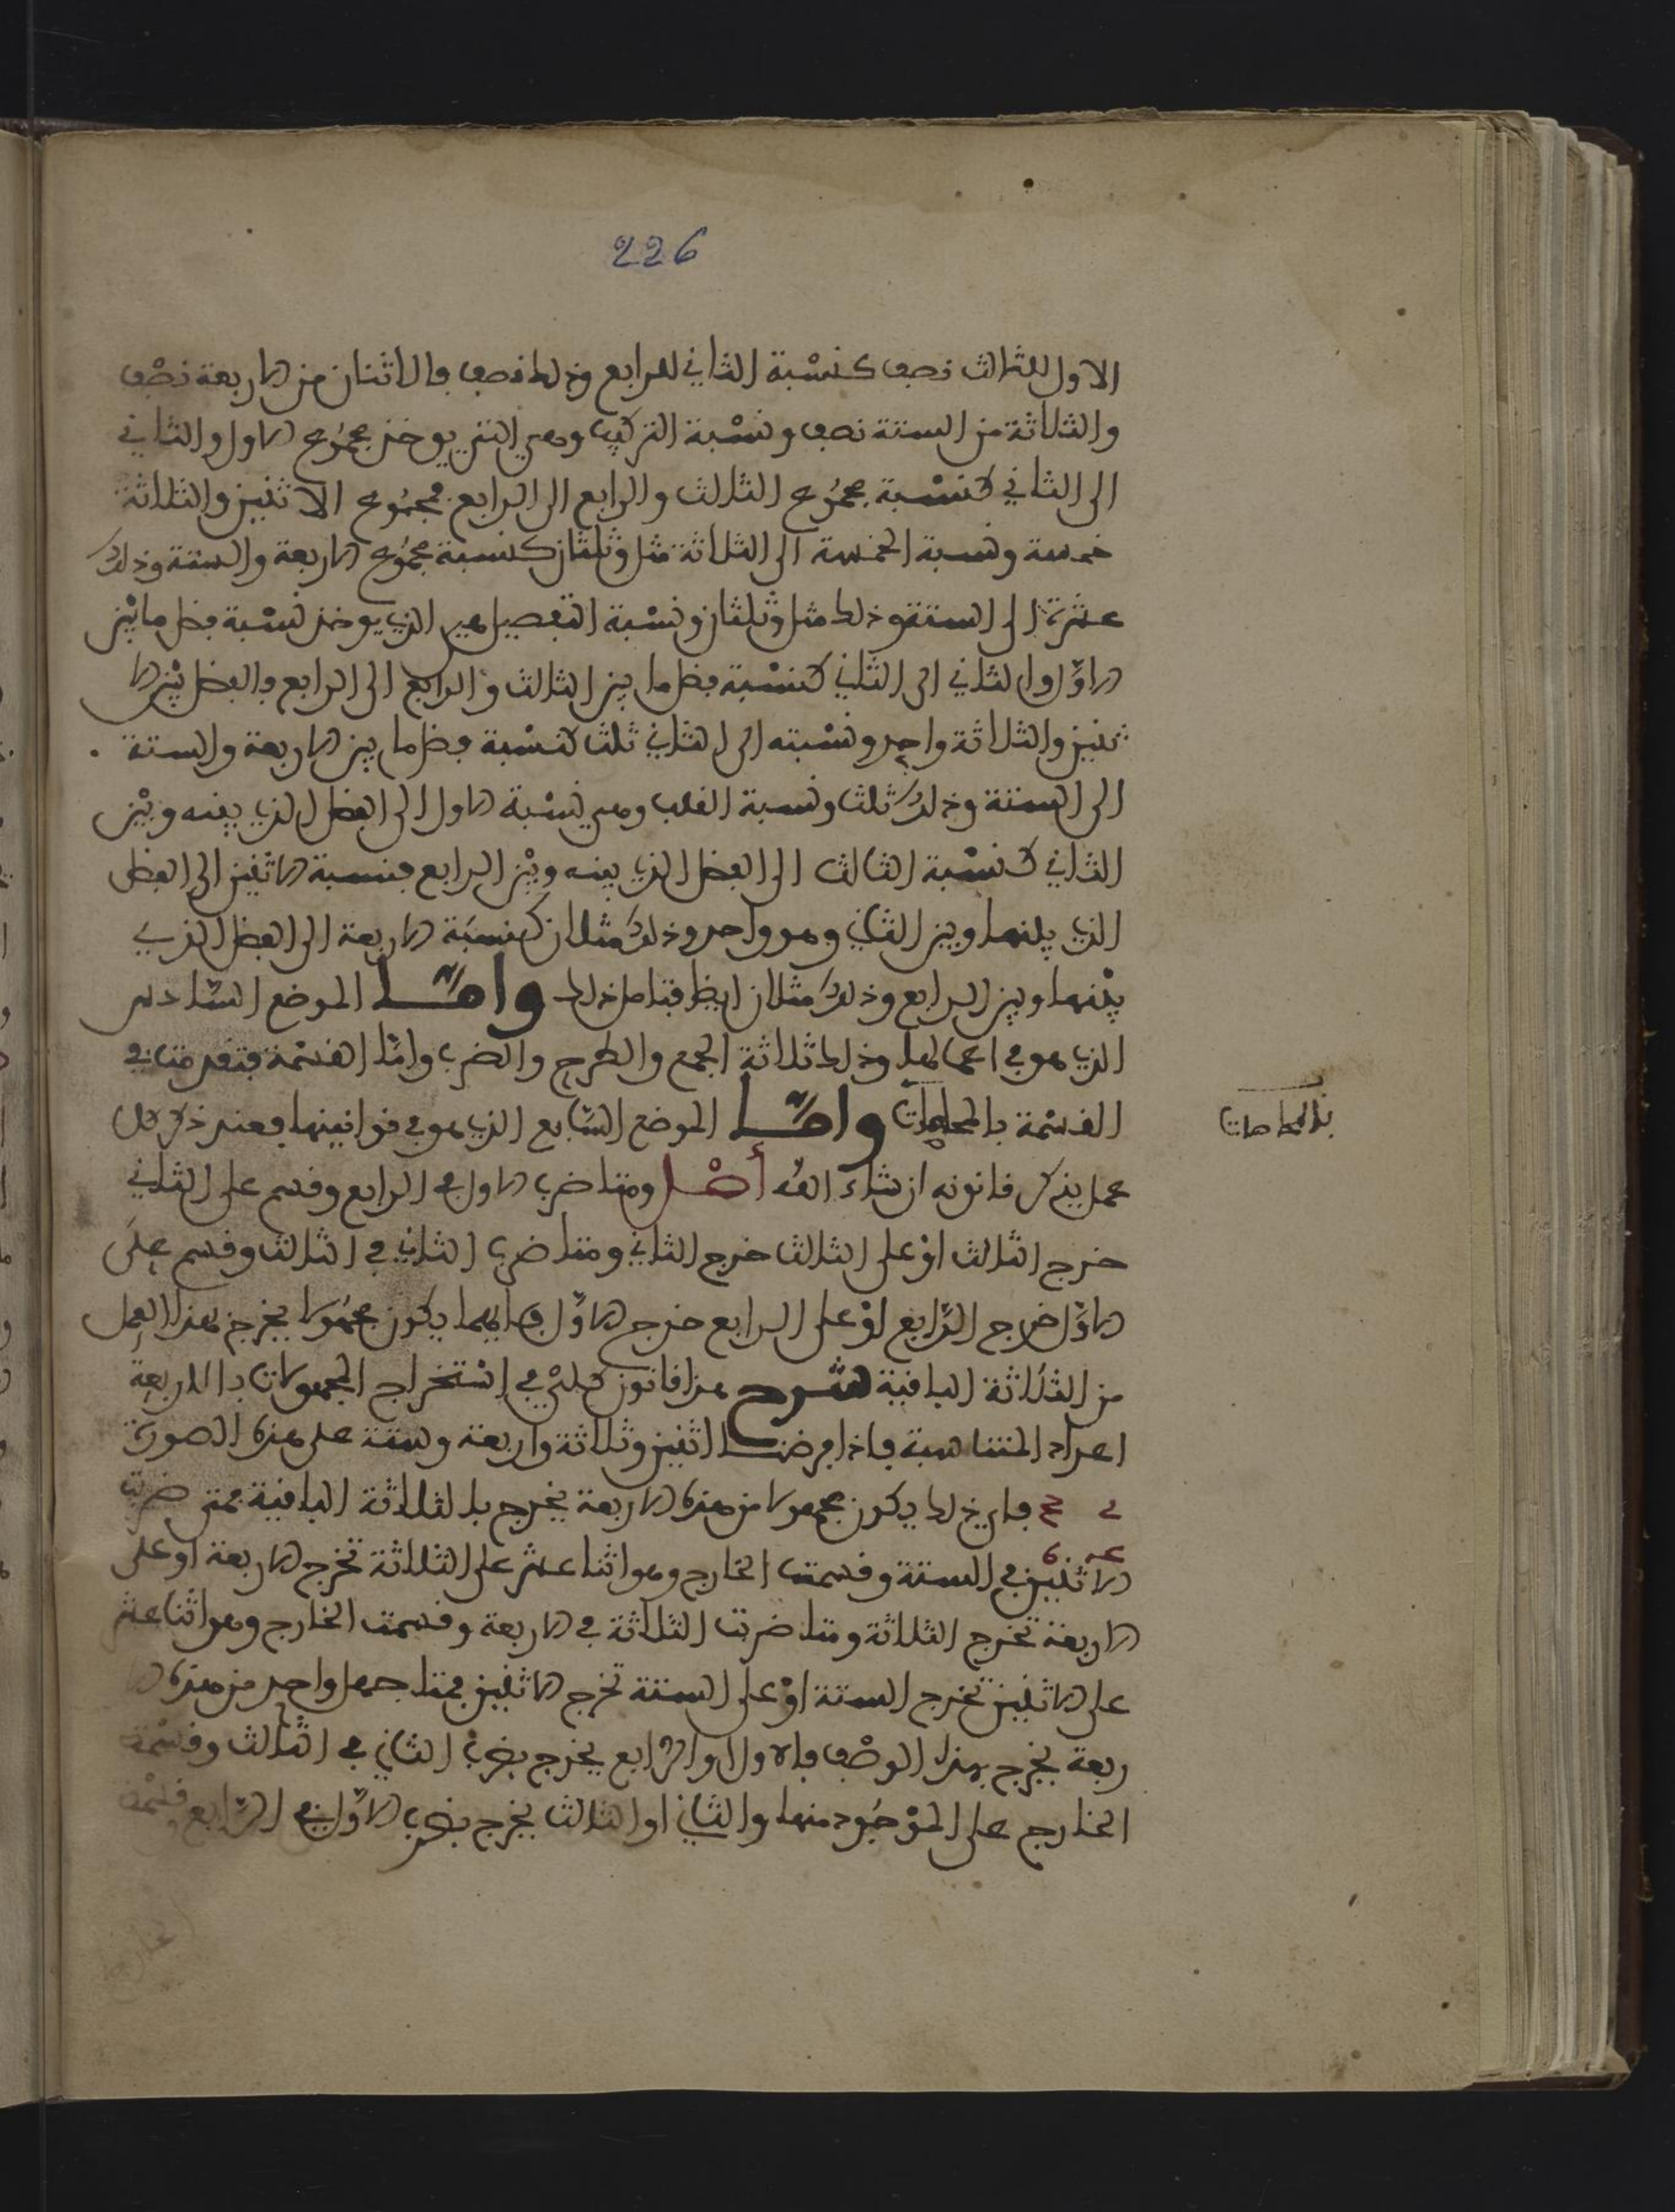 226
الاول للثالث نصف كنسبة الثاني للرابع وذلك نصف فالاثنان من الاربعة نصف
والثلاثة من الستة نصف ونسبة التركيب وهي التي يوخذ مجموع الاول والثاني
الى الثاني كنسبة مجموع الثالث والرابع الى الرابع فمجموع الاثنين والثلاثة
خمسة ونسبة الخمسة الى الثلاثة مثل وثلثان كنسبة مجموع الاربعة والستة وذلك
عشرة الى الستة وذلك مثل وثلثان ونسبة التفصيل هي الذي يوخذ نسبة فضل ما بين
الاول والثاني الى الثاني كنسبة فضل ما بين الثالث والرابع الى الرابع فالفضل بين الا
ثنين والثلاثة واحد ونسبته الى الثاني ثلث كنسبة فضل ما بين الاربعة والستة
الى الستة وذلك ثلث ونسبة القلب وهي نسبة الاول الى الفضل الذي بينه وبين
الثاني كنسبة الثالث الى الفضل الذي بينه وبين الرابع فنسبة الاثنين الى الفضل
الذي بينهما وبين الثاني وهو واحد وذلك مثلان كنسبة الاربعة الى الفضل الذي
بينهما وبين الرابع وذلك مثلان ايضا فتامل ذلك وامّا الموضع السّادس
الذي هو في اعمالها وذلك ثلاثة الجمع والطرح والضرب وامّا القسمة فتقدمت في
القسمة بالمحاصات وامّا الموضع السّابع الذي هو في قوانينها فعند ذكر كل
بالمحاصات
عمل يذكر قانونه ان شاء الله أصل ومتى ضرب الاول في الرابع وقسم على الثاني
خرج الثالث اوْ على الثالث خرج الثاني ومتى ضرب الثاني في الثالث وقسم على
الاوّل خرج الرّابع اوْ على الرابع خرج الاوّل فايهما يكون مجهولا يخرج بهذا العمل
من الثلاثة الباقية شرح هذا قانون كلي في استخراج المجهولات بالاربعة
اعداد المتناسبة فاذا فرضنا اثنين وثلاثة واربعة وستة على هذه الصورة
فاي ذلك يكون مجهولا من هذه الاربعة يخرج بالثلاثة الباقية فمتى ضربت
الاثنين في الستة وقسمت الخارج وهو اثنا عشر على الثلاثة تخرج الاربعة او على
الاربعة تخرج الثلاثة ومتى ضربت الثلاثة في الاربعة وقسمت الخارج وهو اثنا عشر
على الاثنين تخرج الستة اوْ على الستة تخرج الاثنين فمتى جهل واحد من هذه الا
ربعة يخرج بهذا الوصف فالاول او الرّابع يخرج بضرب الثاني في الثالث وقسْمة
الخارج على الموْجُود منهما والثاني او الثالث يخرج بضرب الاوّل في الرّابع وقسْمة